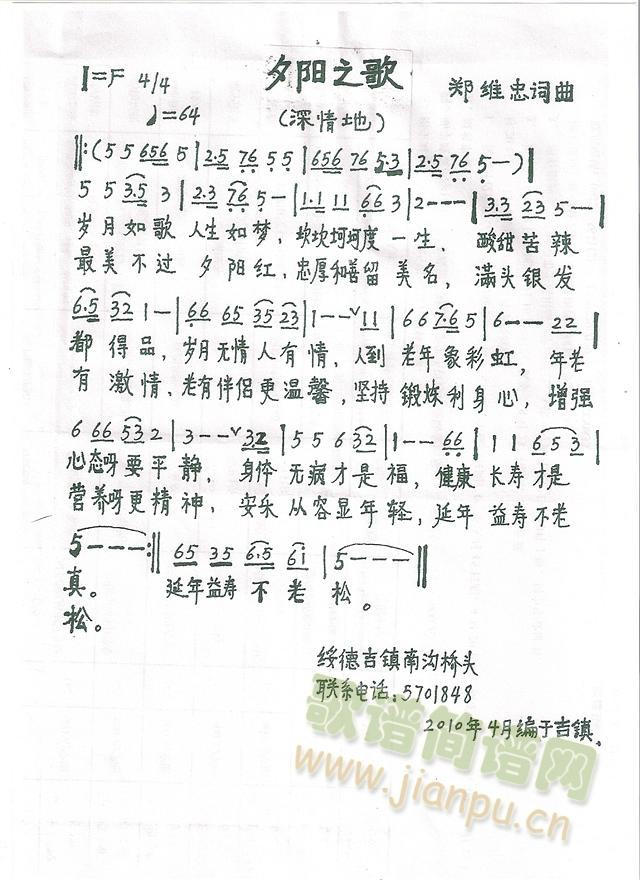 夕阳之歌
1=F 4/4
郑维忠词曲
♩=64
(深情地)
‖:(5 5 656 5 | 2·5 76 5 5 | 656 76 5·3 | 2·5 76 5 —) |
5 5 3·5 3 | 2·3 76 5 — | 1·1 11 66 3 | 2 — — — | 3·3 23 5 — |
岁月如歌 人生如梦，坎坎坷坷度一生、 酸甜苦辣
最美不过 夕阳红，忠厚和善留美名，满头银发
6·5 32 1 — | 66 65 35 23 | 1 — — ∨ 11 | 6 6 7·6 5 | 6 — — 22 |
都得品，岁月无情人有情，人到老年象彩虹，年老
有激情，老有伴侣更温馨，坚持锻炼利身心，增强
6 66 53 2 | 3 — — ∨ 32 | 5 5 6 32 | 1 — — 66 | 1 1 6 5 3 |
心态呀要平静，身体无病才是福，健康长寿才是
营养呀更精神，安乐从容显年轻，延年益寿不老
5 — — — :‖ 65 35 6·5 6i | 5 — — — ‖
真。 延年益寿不老松。
松。
绥德吉镇南沟桥头
联系电话:5701848
2010年4月编于吉镇。
歌谱简谱网
www.jianpu.cn